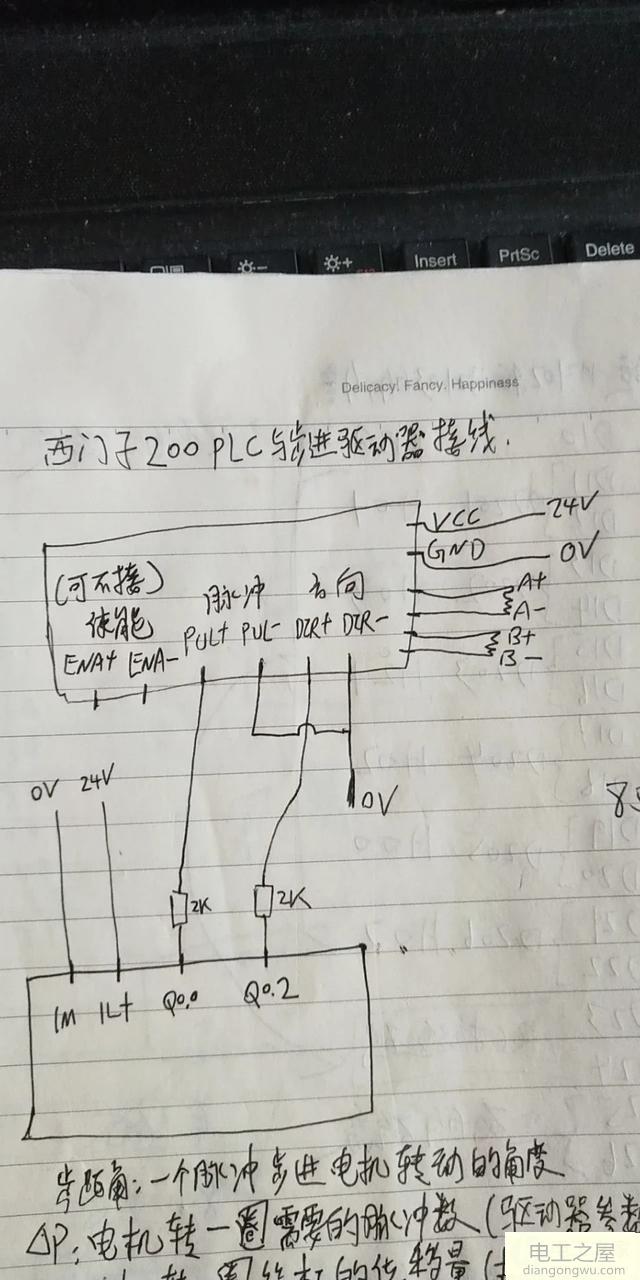 Insert PrtSc Delete
Delicacy. Fancy. Happiness
西门子200 PLC与步进驱动器接线.
VCC 24V
GND 0V
(可不接) 脉冲 方向 A+
使能 A-
PUL+ PUL- DIR+ DIR- B+
ENA+ ENA- B-
0V 24V
0V
2K 2K
1M 1L+ Q0.0 Q0.2
步距角:一个脉冲步进电机转动的角度
ΔP:电机转一圈需要的脉冲数(驱动器参数
转一圈丝杠的位移量(
电工之屋
diangongwu.com